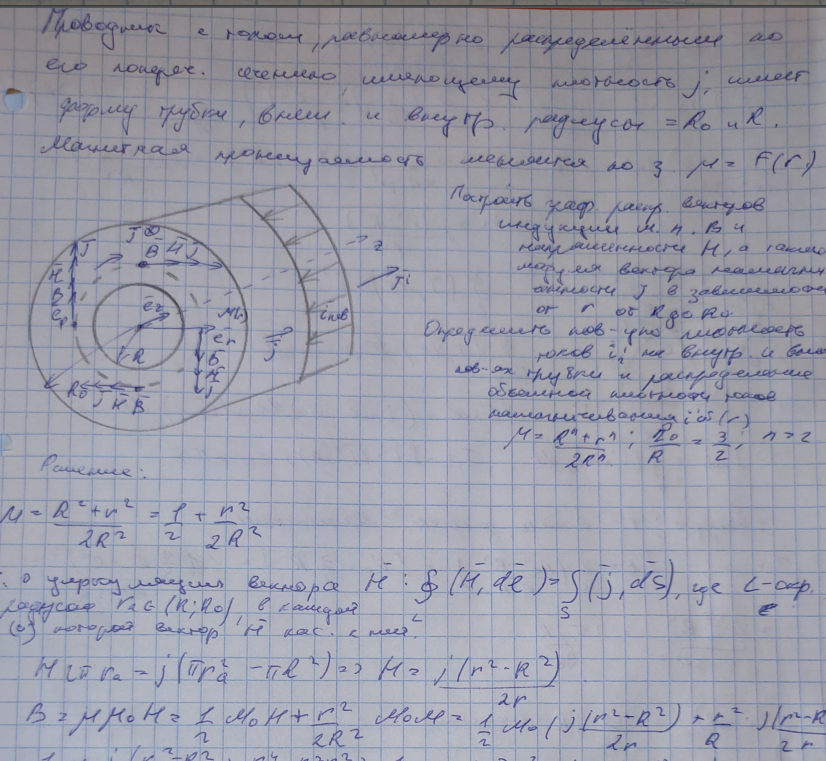 Проводник с током, равномерно распределённым по
его попереч. сечению, имеющему плотность j, имеет
форму трубки, внеш. и внутр. радиусы = R₀ и R.
Магнитная проницаемость меняется по з. μ = F(r)
Построить граф. распр. векторов
индукции м. п. B и
напряженности H, а также
модуля вектора намагнич
енности J в зависимости
от r от R до R₀
Определить пов-ую плотность
токов i на внутр. и внеш.
пов-ях трубки и распределение
объемной плотности токов
намагничивания i об (r)
μ = (Rⁿ + rⁿ)/(2Rⁿ); R₀/R = 3/2; n = 2
Решение:
μ = (R² + r²)/(2R²) = 1/2 + r²/(2R²)
о циркуляции вектора H̄ : ∮(H̄, dl̄) = ∫(j̄, ds̄), где L-окр.
радиусом r₂ ∈ (R; R₀), в каждой
которой вектор H̄ кас. к ней.
H 2π rₐ = j(πrₐ² − πR²) => H = j(r² − R²)/(2r)
B = μμ₀H = 1/2 μ₀H + r²/(2R²) μ₀H = 1/2 μ₀ (j(r² − R²)/(2r) + r²/R